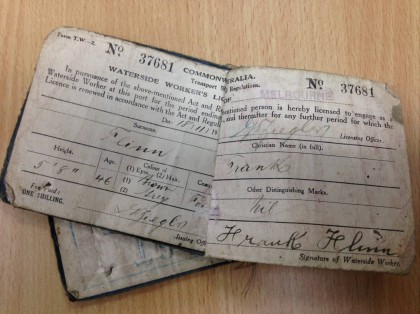 Form T.W.—2.
No 37681
COMMONWEALIA.
Transport Wo Regulations.
WATERSIDE WORKER'S LICE
In pursuance of the above-mentioned Act and Re
Waterside Worker at this port for the period ending
Licence is renewed in accordance with the Act and Regul
Date
Surname.
Flinn
Height.
Age.
Colour of
(1) Eyes. (2) Hair.
5' 8"
46
(1) Brown
(2) Grey
Fee Paid:
ONE SHILLING.
Issuing Offi
No 37681
MELBOURNE
ationed person is hereby licensed to engage as a
, and thereafter for any further period for which the
Licensing Officer.
Christian Name (in full).
Frank
Other Distinguishing Marks.
Nil
Frank Flinn
Signature of Waterside Worker.